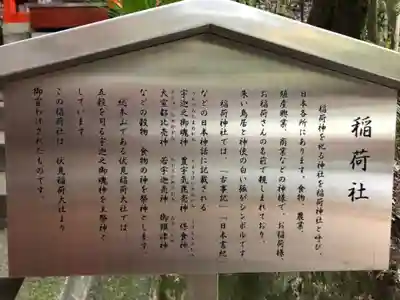 稲荷社
稲荷神を祀る神社を稲荷神社と呼び、
日本各所にあります。食物、農業、
殖産興業、商業などの神様で、お稲荷様、
お稲荷さんの名前で親しまれており、
朱い鳥居と神使の白い狐がシンボルです
稲荷神社では、「古事記」「日本書紀
などの日本神話に記載される
宇迦之御魂神 豊宇気毘売神 保食神
大宜都比売神 若宇迦売神 御饌津神
などの穀物、食物の神を祭神とします。
総本山である伏見稲荷大社では、
五穀を司る宇迦之御魂神を主祭神と
しています
この稲荷社は 伏見稲荷大社より
御霊分けされたものです。